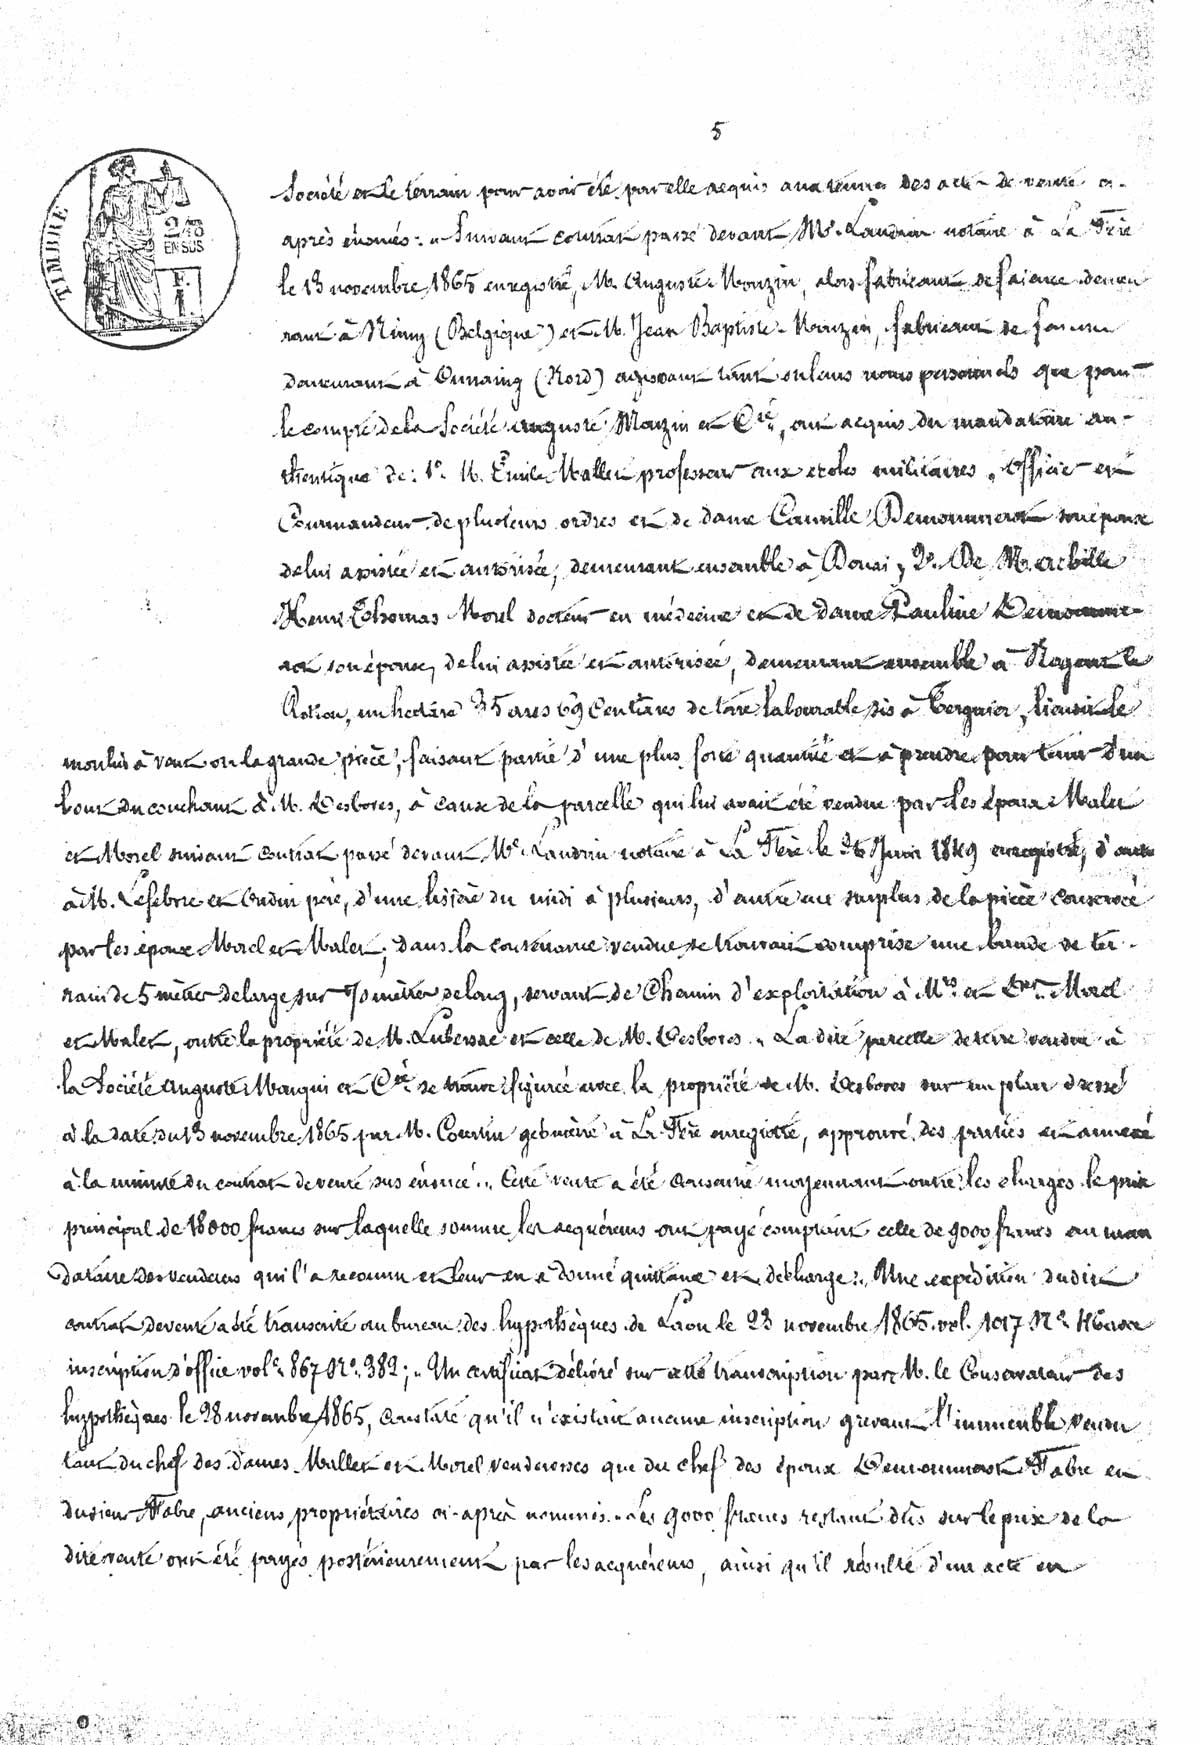 5
TIMBRE
2/10
EN SUS
F.
Société et le terrain pour avoir été par elle acquis aux termes des actes de vente ci-
après énoncés : " Suivant contrat passé devant Me Landrin notaire à La Fère
le 13 novembre 1865 enregistré, M. Auguste Mouzin, alors fabricant de faïence demeu
rant à Nimy (Belgique) et M. Jean Baptiste Mouzin, fabricant de faïence
demeurant à Onnaing (Nord) agissant tant en leurs noms personnels que pour
le compte de la Société Auguste Mouzin et Cie, ont acquis du mandataire au-
thentique de : 1° M. Emile Mallet professeur aux écoles militaires, officier et
Commandeur de plusieurs ordres et de dame Camille Demommerot son épouse
de lui assistée et autorisée, demeurant ensemble à Douai, 2° De M. Achille
Henri Thomas Morel docteur en médecine et de dame Pauline Demommer-
ot son épouse, de lui assistée et autorisée, demeurant ensemble à Nogent le
Rotrou, un hectare 35 ares 69 Centiares de terre labourable sis à Tergnier, lieudit le
moulin à vent ou la grande pièce, faisant partie d'une plus forte quantité et à prendre pour tenir d'un
bout du couchant à M. Desbores, à cause de la parcelle qui lui avait été vendue par les époux Malet
et Morel suivant contrat passé devant Me Landrin notaire à La Fère le 26 Juin 1849 enregistré, d'autre
à M. Lefebvre et Oudin père, d'une lisière du midi à plusieurs, d'autre au surplus de la pièce conservée
par les époux Morel et Malet ; dans la contenance vendue se trouvait comprise une bande de ter-
rain de 5 mètres de large sur 70 mètres de long, servant de Chemin d'exploitation à Mrs et Mes Morel
et Malet, outre la propriété de M. Lubersac et celle de M. Desbores. La dite parcelle de terre vendue à
la Société Auguste Mangin et Cie se trouve figurée avec la propriété de M. Desbores sur un plan dressé
à la date du 13 novembre 1865 par M. Courtin géomètre à La Fère enregistré, approuvé des parties et annexé
à la minute du contrat de vente sus énoncé. " Cette vente a été consentie moyennant outre les charges le prix
principal de 18000 francs sur laquelle somme les acquéreurs ont payé comptant celle de 9000 francs au man
dataire des vendeurs qui l'a reconnu et leur en a donné quittance et décharge. " Une expédition dudit
contrat de vente a été transcrite au bureau des hypothèques de Laon le 23 novembre 1865 vol. 1017 N° avec
inscription d'office vol. 867 N° 382 ; " Un certificat délivré sur cette transcription par M. le Conservateur des
hypothèques le 28 novembre 1865, constate qu'il n'existait aucune inscription grevant l'immeuble vendu
tant du chef des dames Mallet et Morel venderesses que du chef des époux Demommerot Fabre et
du sieur Fabre, anciens propriétaires ci-après nommés. " Les 9000 francs restant dûs sur le prix de la
dite vente ont été payés postérieurement par les acquéreurs, ainsi qu'il résulte d'un acte en